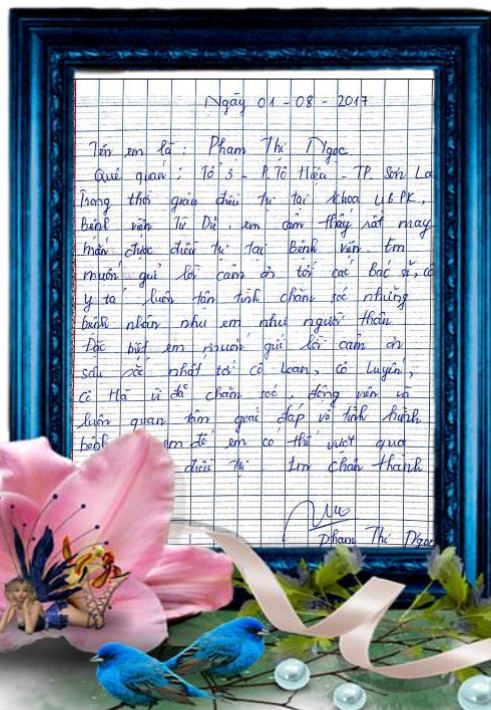 Ngày 01 - 08 - 2017
Tên em là : Phạm Thị Ngọc
Quê quán : Tổ 3 - P. Tô Hiệu - TP. Sơn La
Trong thời gian điều trị tại khoa UBPK,
bệnh viện Từ Dũ, em cảm thấy rất may
mắn được điều trị tại bệnh viện. Em
muốn gửi lời cảm ơn tới các bác sĩ, cô
y tá luôn tận tình chăm sóc những
bệnh nhân như em như người thân.
Đặc biệt em muốn gửi lời cảm ơn
sâu sắc nhất tới cô Loan, cô Luyện,
cô Hà vì đã chăm sóc, động viên và
luôn quan tâm giải đáp về tình hình
bệnh em để em có thể vượt qua
điều trị. Em chân thành
Phạm Thị Ngọc